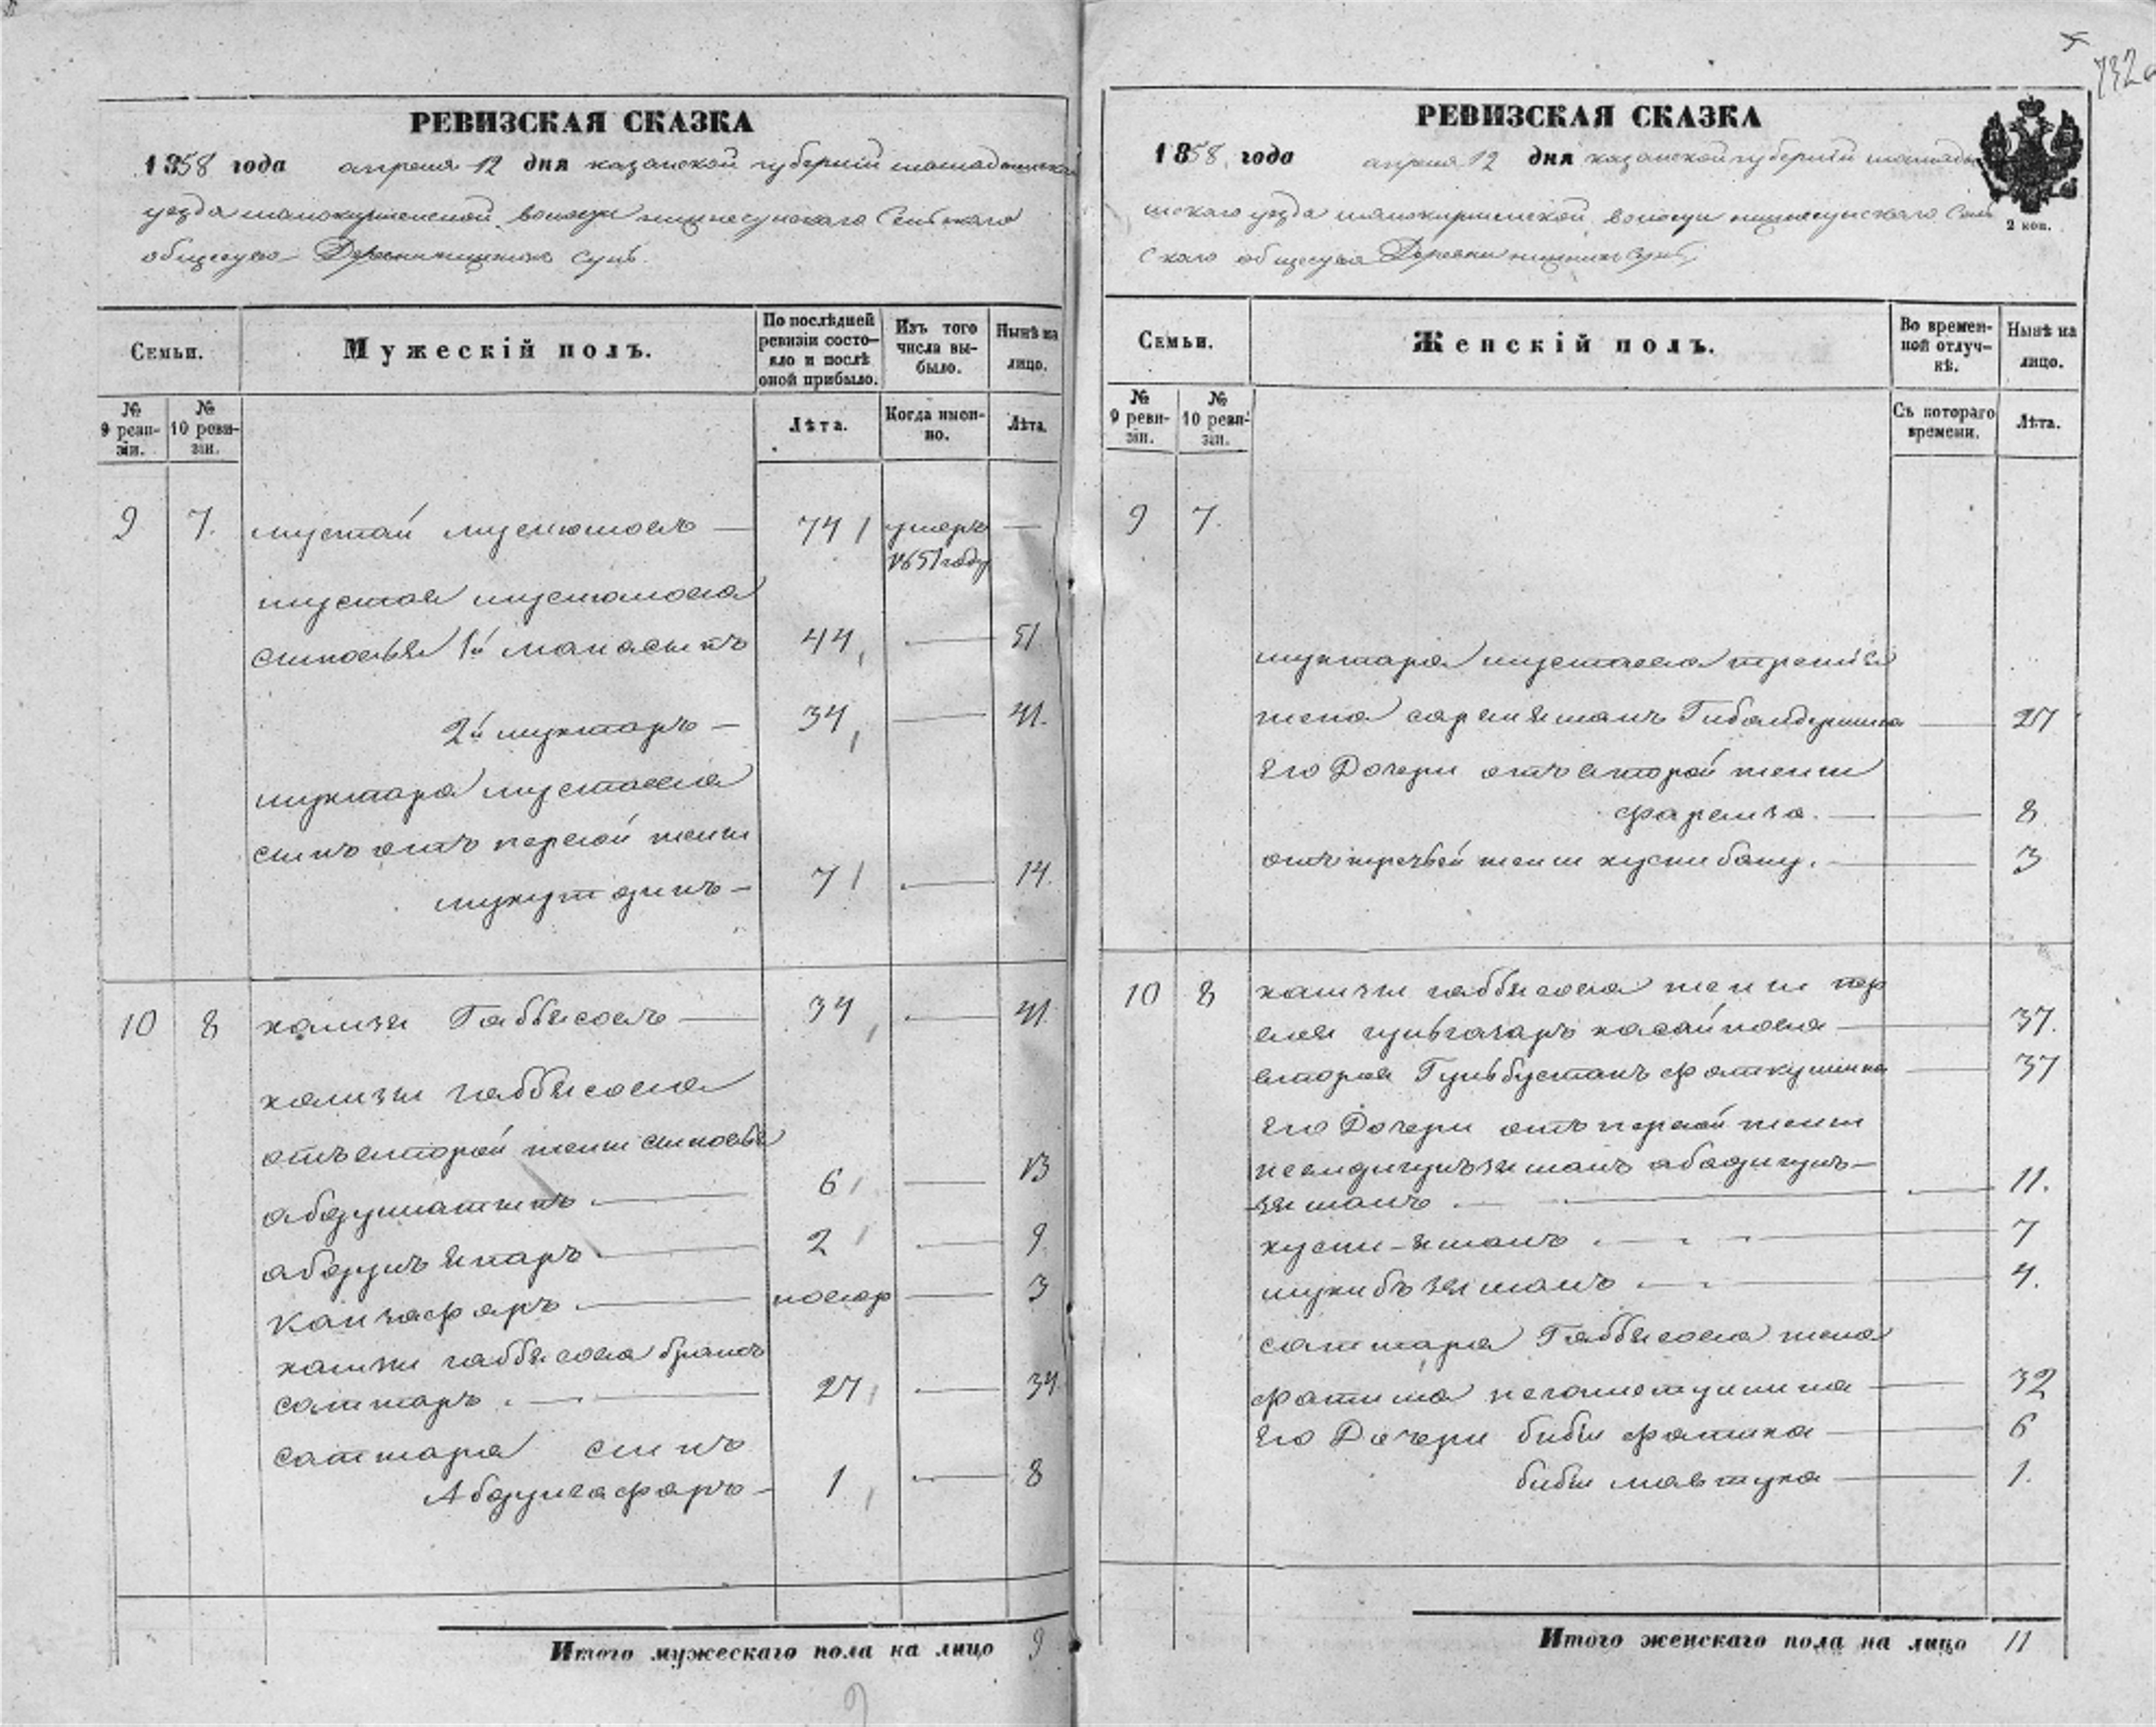 732
РЕВИЗСКАЯ СКАЗКА
1858 года апреля 12 дня казанской губернiи мамадышска
уезда волости Сельскаго
общества Деревни Сунь
Семьи.
Мужескiй полъ.
По послѣдней ревизiи состо-
яло и послѣ
оной прибыло.
Изъ того
числа вы-
было.
Нынѣ на
лицо.
№
9 реви-
зiи.
№
10 реви-
зiи.
Лѣта.
Когда имен-
но.
Лѣта.
9 7. мустай муслюмовъ — 74 умеръ —
1851 году
мустая муслюмова
сыновья 1й 44 — 51
2й мухтаръ — 34 — 41.
мухтара мустаева
сынъ отъ первой жены
мухутдинъ — 7 — 14.
10 8 хамзя Габбясовъ — 34 — 41
хамзи габбясова
отъ второй жены сыновья
абдулматинъ — 6 — 13
абдулъянаръ — 2 — 9
Канзафаръ — новор — 3
хамзи габбясова братъ
саттаръ — 27 — 34
саттара сынъ
Абдулгафаръ — 1 — 8
Итого мужескаго пола на лицо 9
РЕВИЗСКАЯ СКАЗКА
1858 года апреля 12 дня казанской губернiи мамады
шскаго уезда волости Сель
скаго общества Деревни Сунь
2 коп.
Семьи.
Женскiй полъ.
Во времен-
ной отлуч-
кѣ.
Нынѣ на
лицо.
№
9 реви-
зiи.
№
10 реви-
зiи.
Съ котораго
времени.
Лѣта.
9 7.
мухтара мустаева третiя
жена — 27
Его Дочери отъ второй жены
фарелза. — 8
отъ третьей жены хуснибану. — 3
10 8 хамзи габбясова жены пер
вая гульгаухаръ — 37.
вторая Гульбустанъ фаткулина — 37
Его Дочери отъ первой жены
— 11.
хусни-ямалъ — 7
— 4.
саттара Габбясова жена
фатима — 32
Его Дочери биби фатиха — 6
биби мавтуха — 1.
Итого женскаго пола на лицо 11